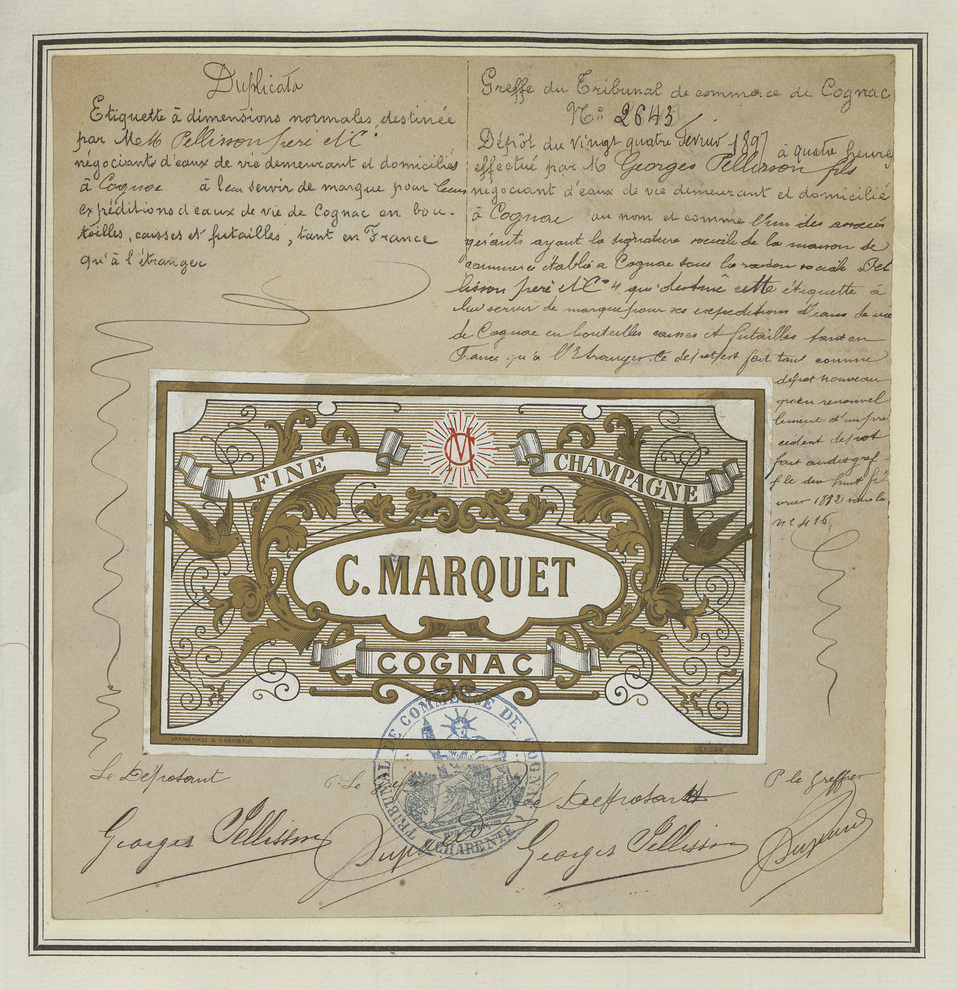 Duplicata
Etiquette à dimensions normales, destinée
par MM Pellisson père et Cie
négociants d'eaux de vie demeurant et domiciliés
à Cognac à leur servir de marque pour leurs
expéditions d'eaux de vie de Cognac en bou-
teilles, caisses et futailles, tant en France
qu'à l'étranger
Greffe du Tribunal de commerce de Cognac
No: 2643
Dépôt du vingt quatre février 1897 à quatre heures
effectué par M Georges Pellisson fils
négociant d'eaux de vie demeurant et domicilié
à Cognac au nom et comme l'un des associés
gérants ayant la signature sociale de la maison de
commerce établie à Cognac sous la raison sociale Pel
lisson père et Cie qui destine cette étiquette à
lui servir de marque pour ses expéditions d'eaux de vie
de Cognac en bouteilles caisses et futailles tant en
France qu'à l'Etranger Ce dépôt est fait tant comme
dépôt nouveau
qu'en renouvel
lement d'un pré
cédent dépôt
fait audit gref
fe le dix huit fé
vrier 1882 sous le
no 416
FINE
CM
CHAMPAGNE
C. MARQUET
COGNAC
DÉPOSÉ
TRIBUNAL DE COMMERCE DE COGNAC
CHARENTE
Le Déposant
P. Le Greffier
Le Déposant
P le Greffier
Georges Pellisson
Georges Pellisson